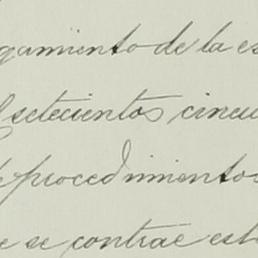 gamiento de la es
setecientos cincu
procedimientos
e se contrae est